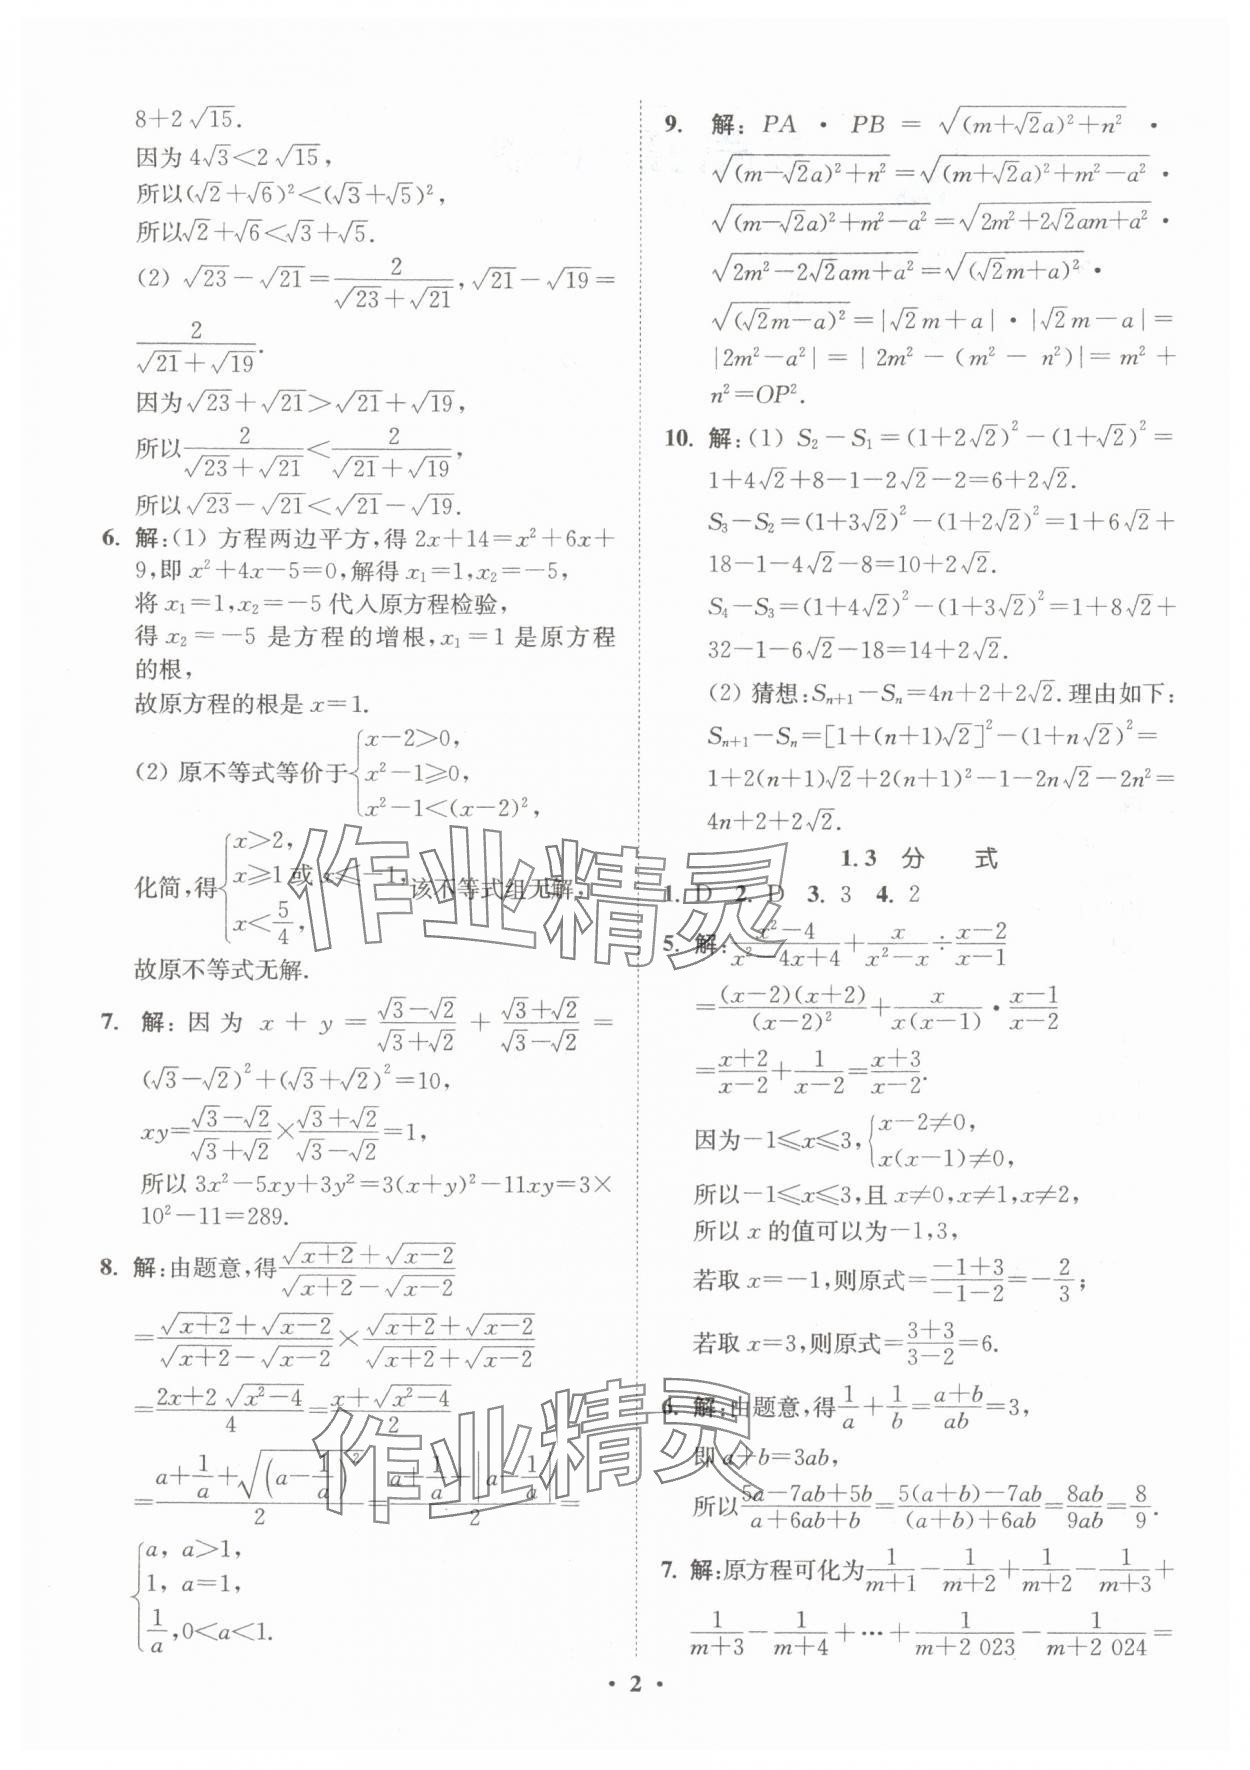 8+2√15.
因为 4√3<2√15,
所以(√2+√6)²<(√3+√5)²,
所以√2+√6<√3+√5.
(2) √23-√21=2/(√23+√21),√21-√19=
2/(√21+√19).
因为√23+√21>√21+√19,
所以2/(√23+√21)<2/(√21+√19),
所以√23-√21<√21-√19.
6. 解:(1) 方程两边平方,得 2x+14=x²+6x+
9,即 x²+4x-5=0,解得 x₁=1,x₂=-5,
将 x₁=1,x₂=-5 代入原方程检验,
得 x₂=-5 是方程的增根,x₁=1 是原方程
的根,
故原方程的根是 x=1.
(2) 原不等式等价于{x-2>0,
x²-1≥0,
x²-1<(x-2)²,
化简,得{x>2,
x≥1 或 x≤-1,该不等式组无解,
x<5/4,
故原不等式无解.
7. 解:因为 x+y=(√3-√2)/(√3+√2)+(√3+√2)/(√3-√2)=
(√3-√2)²+(√3+√2)²=10,
xy=(√3-√2)/(√3+√2)×(√3+√2)/(√3-√2)=1,
所以 3x²-5xy+3y²=3(x+y)²-11xy=3×
10²-11=289.
8. 解:由题意,得(√(x+2)+√(x-2))/(√(x+2)-√(x-2))
=(√(x+2)+√(x-2))/(√(x+2)-√(x-2))×(√(x+2)+√(x-2))/(√(x+2)+√(x-2))
=(2x+2√(x²-4))/4=(x+√(x²-4))/2
=(a+1/a+√((a-1/a)²))/2=(a+1/a+|a-1/a|)/2=
{a, a>1,
1, a=1,
1/a,0<a<1.
9. 解:PA·PB=√((m+√2a)²+n²)·
√((m-√2a)²+n²)=√((m+√2a)²+m²-a²)·
√((m-√2a)²+m²-a²)=√(2m²+2√2am+a²)·
√(2m²-2√2am+a²)=√((√2m+a)²)·
√((√2m-a)²)=|√2m+a|·|√2m-a|=
|2m²-a²|=|2m²-(m²-n²)|=m²+
n²=OP².
10. 解:(1) S₂-S₁=(1+2√2)²-(1+√2)²=
1+4√2+8-1-2√2-2=6+2√2.
S₃-S₂=(1+3√2)²-(1+2√2)²=1+6√2+
18-1-4√2-8=10+2√2.
S₄-S₃=(1+4√2)²-(1+3√2)²=1+8√2+
32-1-6√2-18=14+2√2.
(2) 猜想:Sₙ₊₁-Sₙ=4n+2+2√2.理由如下:
Sₙ₊₁-Sₙ=[1+(n+1)√2]²-(1+n√2)²=
1+2(n+1)√2+2(n+1)²-1-2n√2-2n²=
4n+2+2√2.
1.3 分 式
1. D 2. D 3. 3 4. 2
5. 解:(x²-4)/(x²-4x+4)+x/(x²-x)÷(x-2)/(x-1)
=(x-2)(x+2)/(x-2)²+x/(x(x-1))·(x-1)/(x-2)
=(x+2)/(x-2)+1/(x-2)=(x+3)/(x-2).
因为-1≤x≤3,{x-2≠0,
x(x-1)≠0,
所以-1≤x≤3,且 x≠0,x≠1,x≠2,
所以 x 的值可以为-1,3,
若取 x=-1,则原式=(-1+3)/(-1-2)=-2/3;
若取 x=3,则原式=(3+3)/(3-2)=6.
6. 解:由题意,得1/a+1/b=(a+b)/ab=3,
即 a+b=3ab,
所以(5a-7ab+5b)/(a+6ab+b)=(5(a+b)-7ab)/((a+b)+6ab)=8ab/9ab=8/9.
7. 解:原方程可化为1/(m+1)-1/(m+2)+1/(m+2)-1/(m+3)+
1/(m+3)-1/(m+4)+…+1/(m+2 023)-1/(m+2 024)=
· 2 ·
作业精灵
作业精灵